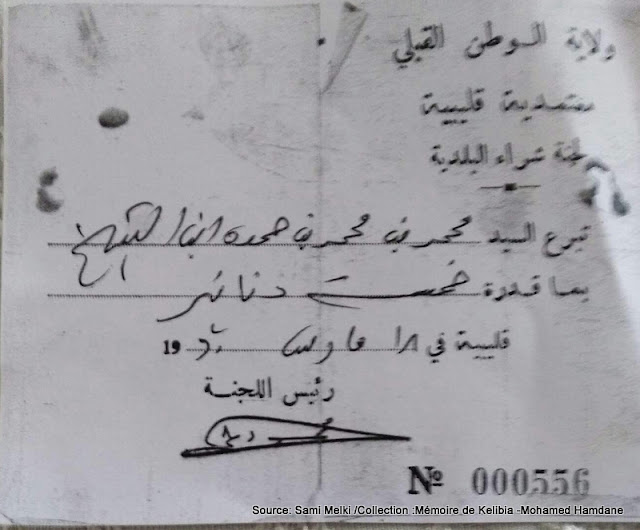 ولاية الـوطن القبلي
معتمدية قليبية
لجنة شراء البلدية
تبرع السيد محمد بن محمد بن حمدة
بما قدرة خمسة دنانير
قليبية في مارس 19
رئيس اللجنـة
№ 000556
Source: Sami Melki /Collection :Mémoire de Kelibia -Mohamed Hamdane